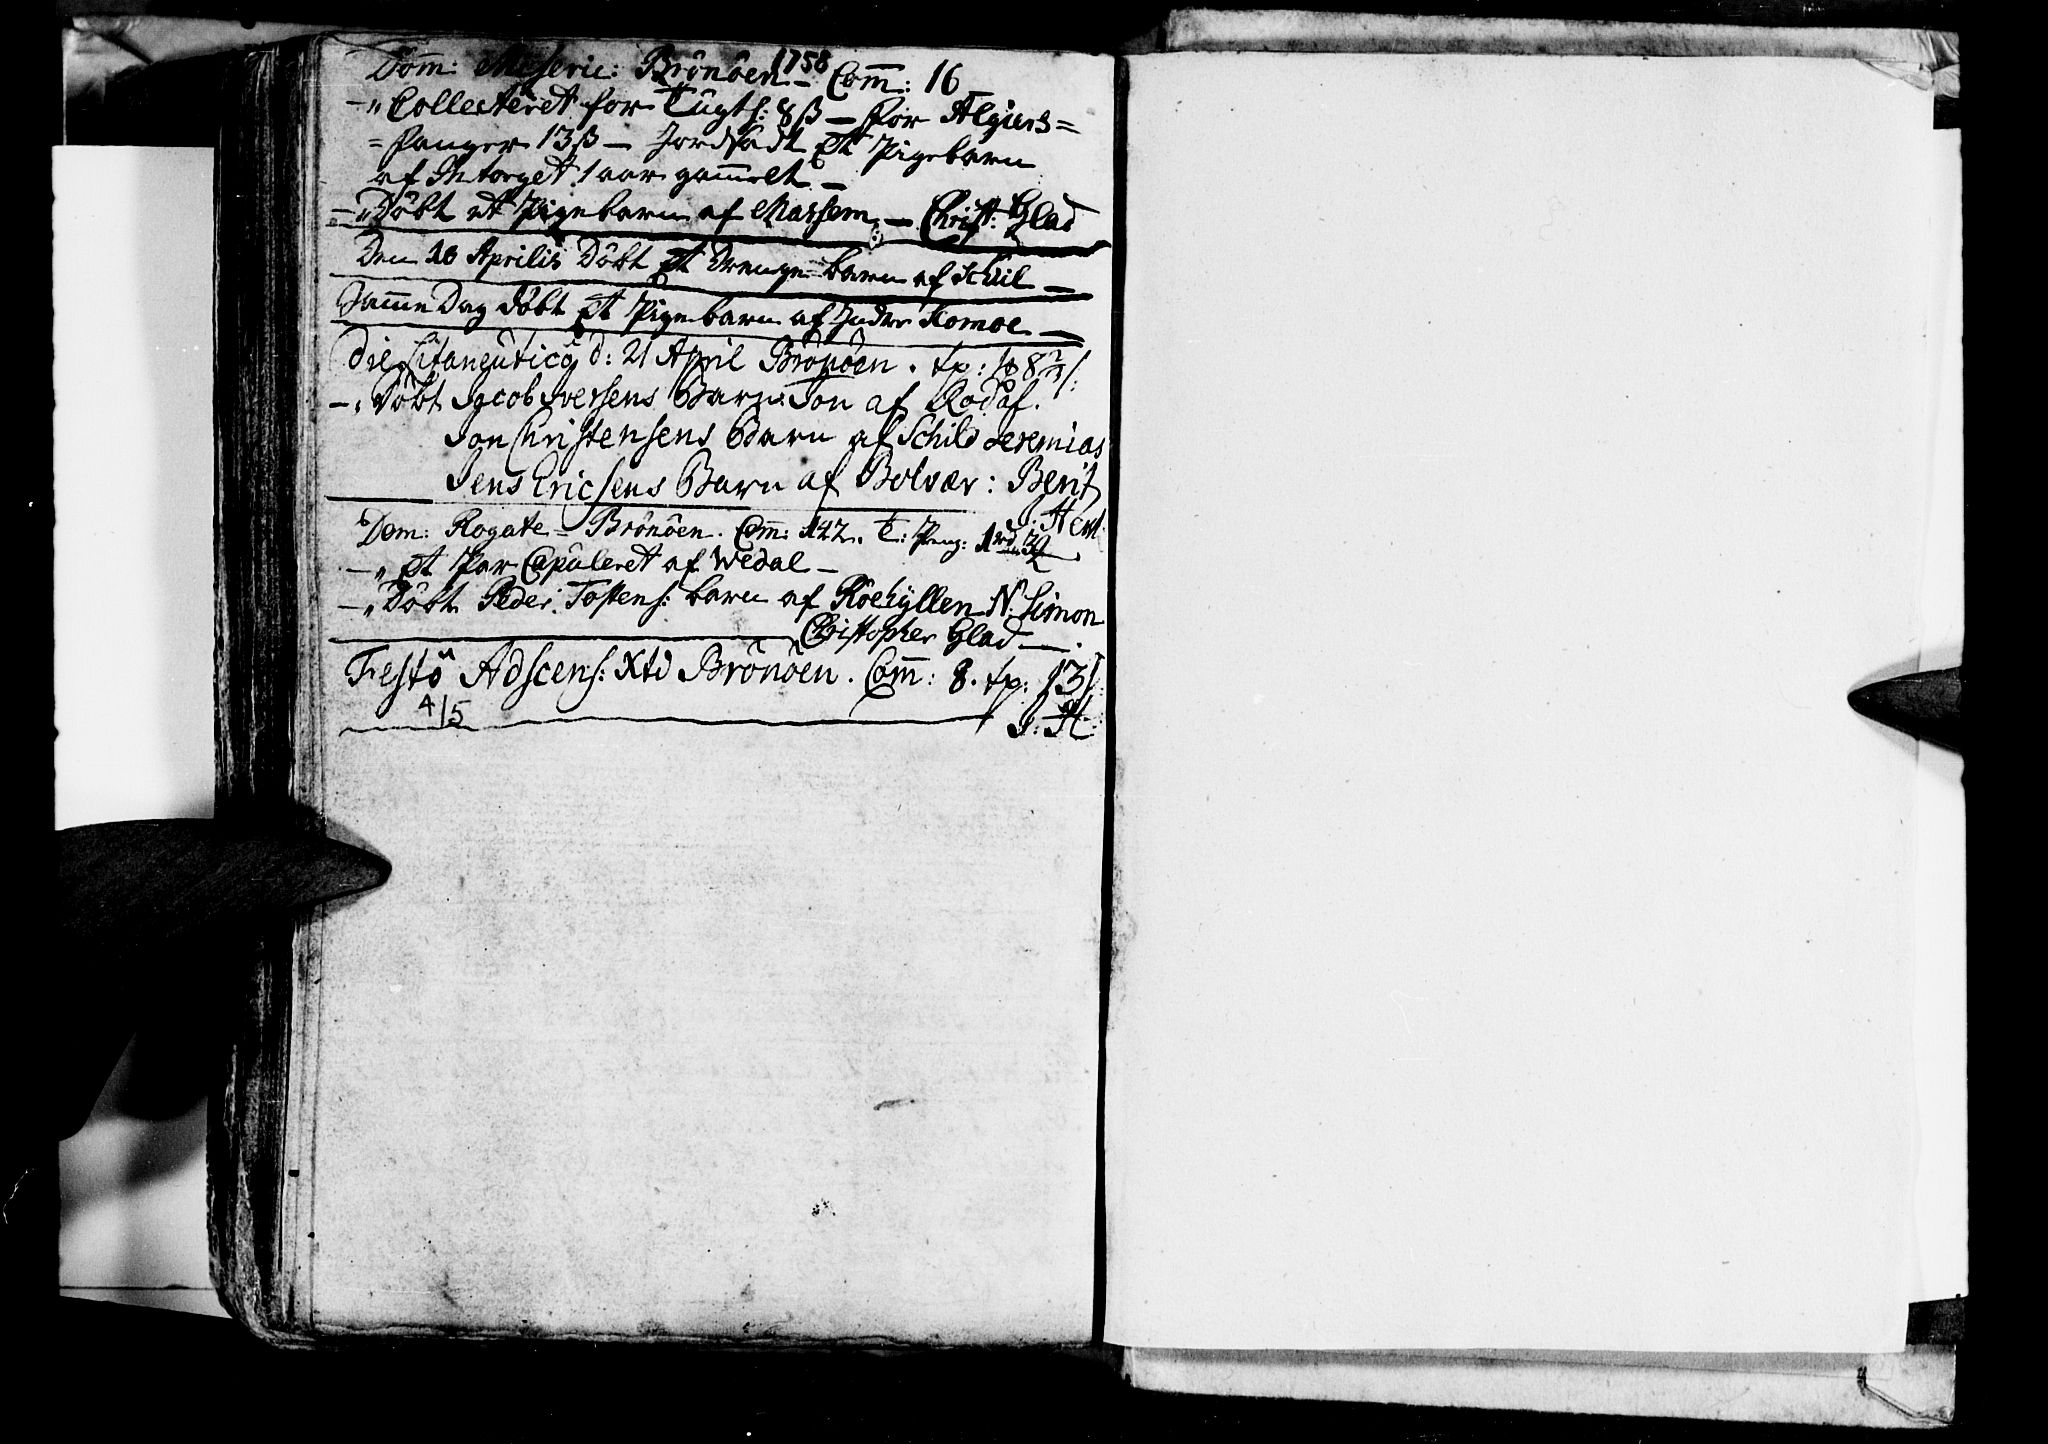 1758
Dom: Miseric: Brönöen – Com̄: 16
–„ Collecteret for Tugth: 8 ß – for Algiers=
=Fanger 13 ß – Jordfæst Et Pigebarn
af Intorget 1 aar gam̄elt –
–„ Döbt et Pigebarn af Marsem. – Christ: Glad
Den 18 Aprilis Döbt Et Drenge=barn af Schiil –
Sam̄e Dag döbt Et Pigebarn af Indre Komoe –
Die Litaneutico d: 21 April Brönöen. tp:
–„ Döbt Jacob Iversens Barn: Jon af Rodöf.
Jon Christensens Barn af Schild Jeremias
Jens Ericsens Barn af Bolvær: Berit
J: Hert
Dom: Rogate – Brönöen. Com̄: 142. T: Peng: 1 rd
–„ Et Par Copuleret af Wedal –
–„ Döbt Peder Tostens: barn af Röehyllen N: Simon
Christopher Glad –
Festo Adscens: Xti Brönöen. Com̄: 8. tp: 13
4/5
J: H: